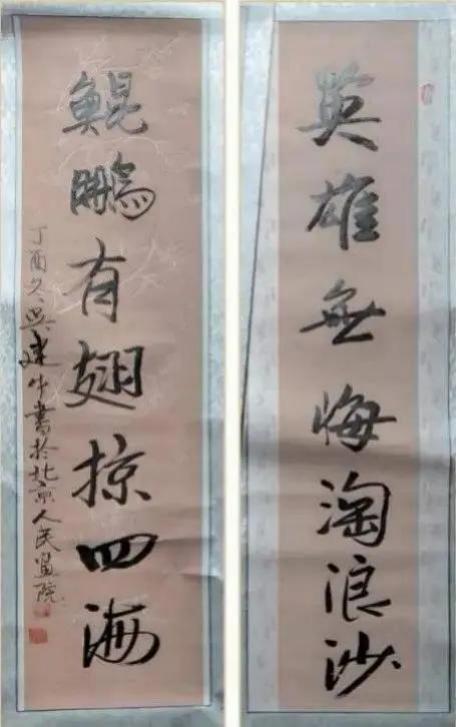 英雄無悔淘浪沙
鯤鵬有翅掠四海
丁酉冬吳建中書於北京人民畫院